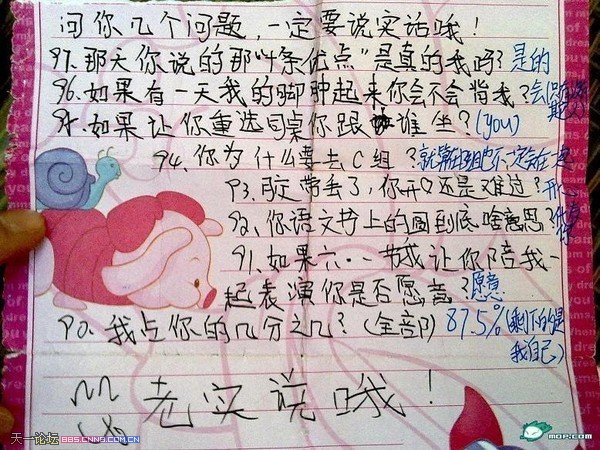 问你几个问题,一定要说实话哦!
97.那天你说的那"十条优点"是真的我吗?是的
96.如果有一天我的脚肿起来你会不会背我?会
95.如果让你重选同桌你跟谁坐?(you)
94.你为什么要去C组?
93.胶带丢了,你开心还是难过?开心
92.你语文书上的图到底啥意思?
91.如果六·一节或让你陪我一
起表演你是否愿意?愿意
90.我占你的几分之几?(全部)87.5%(剩下的是
我自己)
老实说哦!
天一论坛 BBS.CNNB.COM.CN
MOP.COM